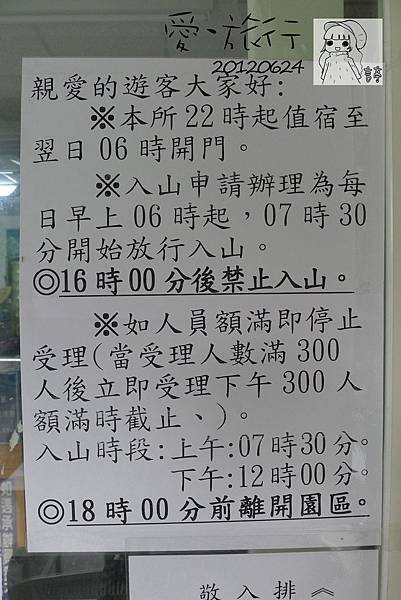 愛、旅行
20120624
親愛的遊客大家好:
※本所22時起值宿至
翌日06時開門。
※入山申請辦理為每
日早上06時起，07時30
分開始放行入山。
◎16時00分後禁止入山。
※如人員額滿即停止
受理(當受理人數滿300
人後立即受理下午300人
額滿時截止、)。
入山時段:上午:07時30分。
下午:12時00分。
◎18時00分前離開園區。
敬入排《